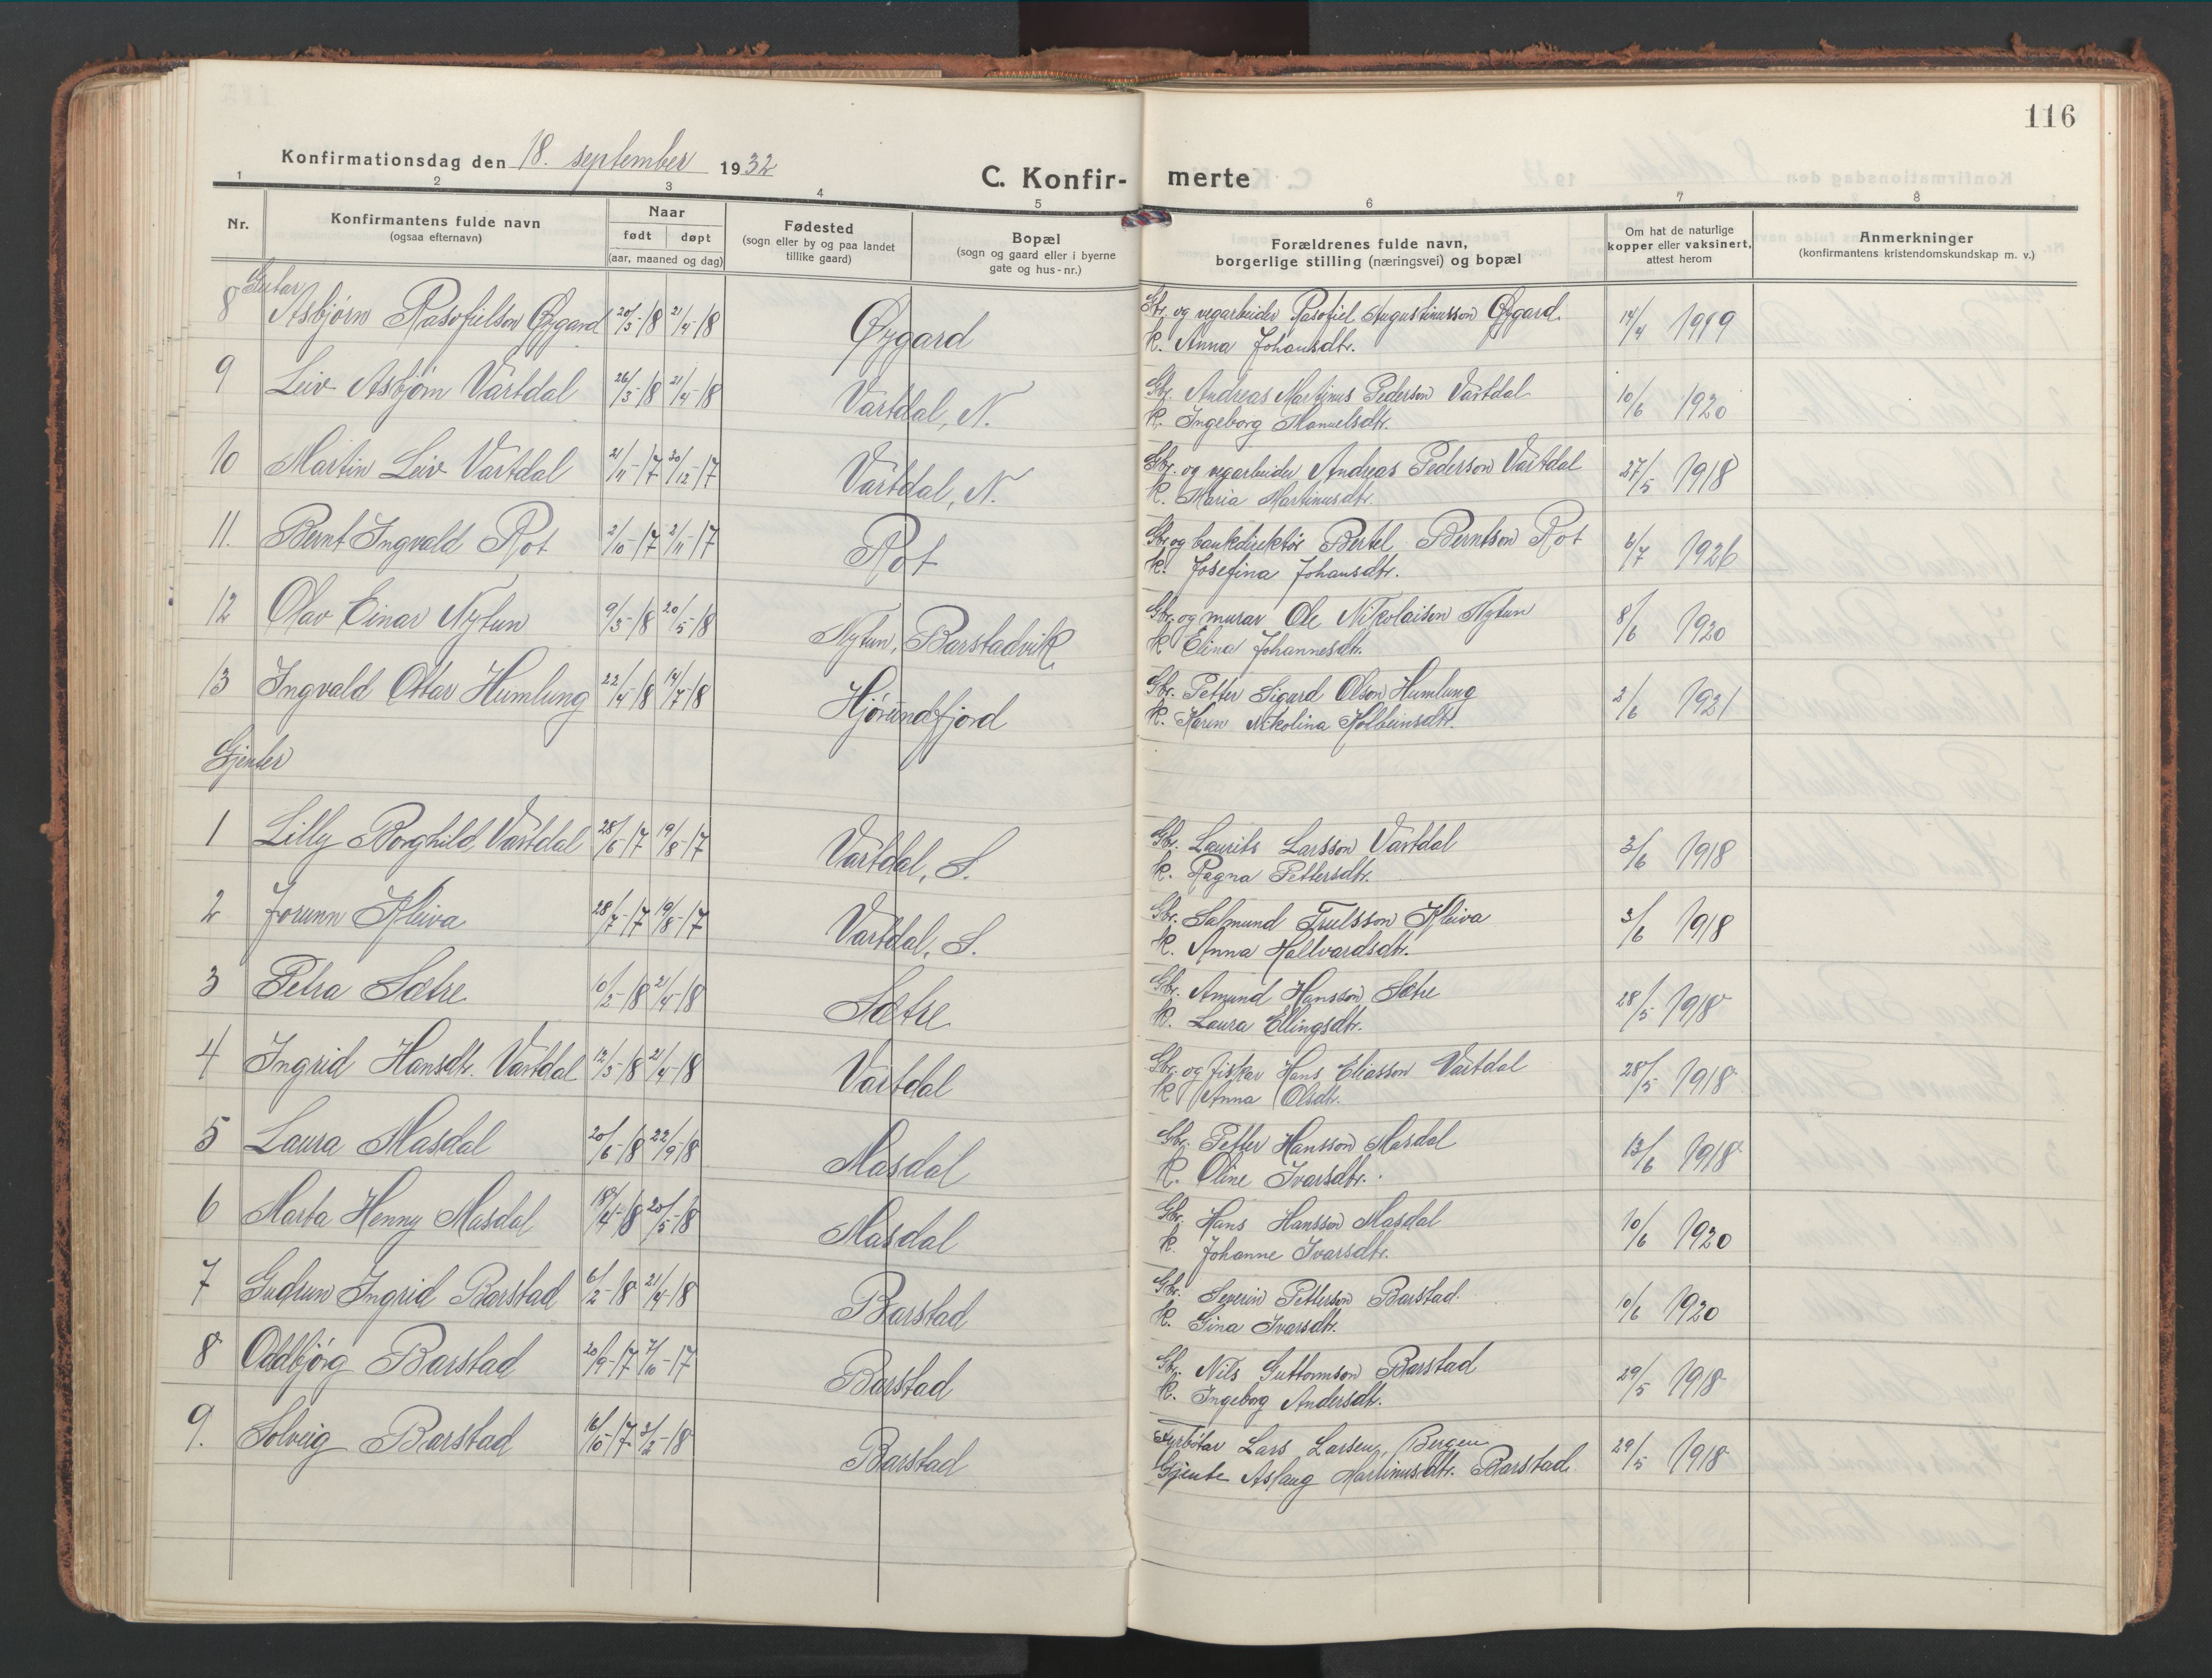 116
Konfirmationsdag den 18. september 1932
C. Konfir- merte
1 2 3 4 5 6 7 8
Nr.
Konfirmantens fulde navn
(ogsaa efternavn)
Naar
født døpt
(aar, maaned og dag)
Fødested
(sogn eller by og paa landet
tillike gaard)
Bopæl
(sogn og gaard eller i byerne
gate og hus-nr.)
Forældrenes fulde navn,
borgerlige stilling (næringsvei) og bopæl
Om hat de naturlige
kopper eller vaksinert,
attest herom
Anmerkninger
(konfirmantens kristendomskundskap m. v.)
Gutar
8 Asbjørn Rasofielson Øygard 20/3-18 21/4-18 Øygard Gbr. og vegarbeider Rasofiel Augustinusson Øygard 14/4 1919
k. Anna Johansdtr.
9 Leiv Asbjørn Vartdal 26/3-18 21/4-18 Vartdal, N. Gbr. Andreas Martinus Pederson Vartdal 10/6 1920
k. Ingeborg Manuelsdtr.
10 Martin Leiv Vartdal 21/11-17 20/12-17 Vartdal, N. Gbr. og vegarbeider Andreas Pederson Vartdal 27/5 1918
k. Maria Martinusdtr.
11. Bernt Ingvald Rot 2/10-17 2/11-17 Rot Gbr. og bankdirektør Bertel Berntson Rot 6/7 1926
k. Josefina Johansdtr.
12 Olav Einar Nytun 9/3-18 20/5-18 Nytun, Barstadvik Gbr. og murar Ole Nikolaisen Nytun 8/6 1920
k. Elina Johannesdtr.
13 Ingvald Ottar Humlung 22/4-18 14/7-18 Hjørundfjord Gbr. Petter Sigurd Olson Humlung 2/6 1921
k. Karen Nikolina Kolbeinsdtr.
Gjenter
1 Lilly Borghild Vartdal 28/6-17 19/8-17 Vartdal, S. Gbr. Laurits Larsson Vartdal 3/6 1918
k. Ragna Pettersdtr.
2 Jorunn Kleiva 28/7-17 19/8-17 Vartdal, S. Gbr. Salmund Trulsson Kleiva 3/6 1918
k. Anna Hallvardsdtr.
3 Petra Sætre 10/2-18 21/4-18 Sætre Gbr. Amund Hansson Sætre 28/5 1918
k. Laura Ellingsdtr.
4 Ingrid Hansdtr. Vartdal 12/3-18 21/4-18 Vartdal Gbr. og fiskar Hans Eliasson Vartdal 28/5 1918
k. Anna Olsdtr.
5 Laura Masdal 20/6-18 22/9-18 Masdal Gbr. Petter Hansson Masdal 12/6 1918
k. Oline Ivarsdtr.
6 Marta Henny Masdal 18/4-18 20/5-18 Masdal Gbr. Hans Hansson Masdal 10/6 1920
k. Johanne Ivarsdtr.
7 Gudrun Ingrid Barstad 6/2-18 21/4-18 Barstad Gbr. Severin Petterson Barstad 10/6 1920
k. Gina Ivarsdtr.
8 Oddbjørg Barstad 20/9-17 7/10-17 Barstad Gbr. Nils Guttormson Barstad 29/5 1918
k. Ingeborg Andersdtr.
9. Solveig Barstad 16/10-17 3/2-18 Barstad Fyrbøtar Lars Larsen, Bergen 29/5 1918
Gjente Aslaug Martinusdtr. Barstad